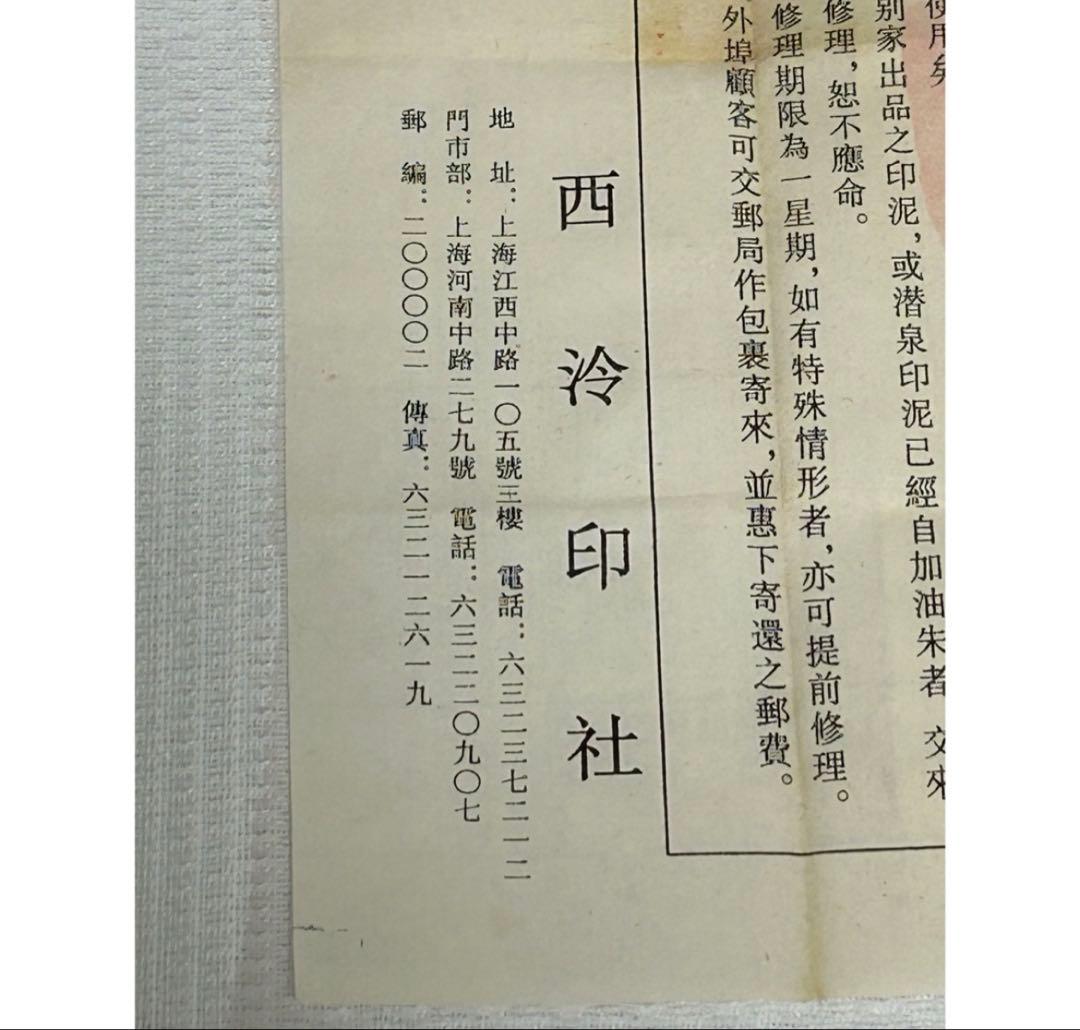 使用矣
别家出品之印泥，或潜泉印泥已經自加油朱者 交來
修理，恕不應命。
修理期限為一星期，如有特殊情形者，亦可提前修理。
外埠顧客可交郵局作包裹寄來，並惠下寄還之郵費。
西泠印社
地 址：上海江西中路一〇五號三樓 電話：六三二三七二一二
門市部：上海河南中路二七九號 電話：六三二二〇九〇七
郵 編：二〇〇〇〇二 傳真：六三二一二六一九